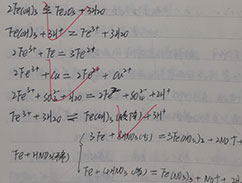 2Fe(OH)₃ ≜ Fe₂O₃ + 3H₂O
Fe(OH)₃ + 3H⁺ = Fe³⁺ + 3H₂O
2Fe³⁺ + Fe = 3Fe²⁺
2Fe³⁺ + Cu = 2Fe²⁺ + Cu²⁺
2Fe³⁺ + SO₃²⁻ + H₂O = 2Fe²⁺ + SO₄²⁻ + 2H⁺
Fe³⁺ + 3H₂O ⇌ Fe(OH)₃ + 3H⁺
3Fe + 8HNO₃ = 3Fe(NO₃)₂ + 2NO↑ +
Fe + HNO₃
Fe + 4HNO₃ = Fe(NO₃)₃ + NO↑ + 2H